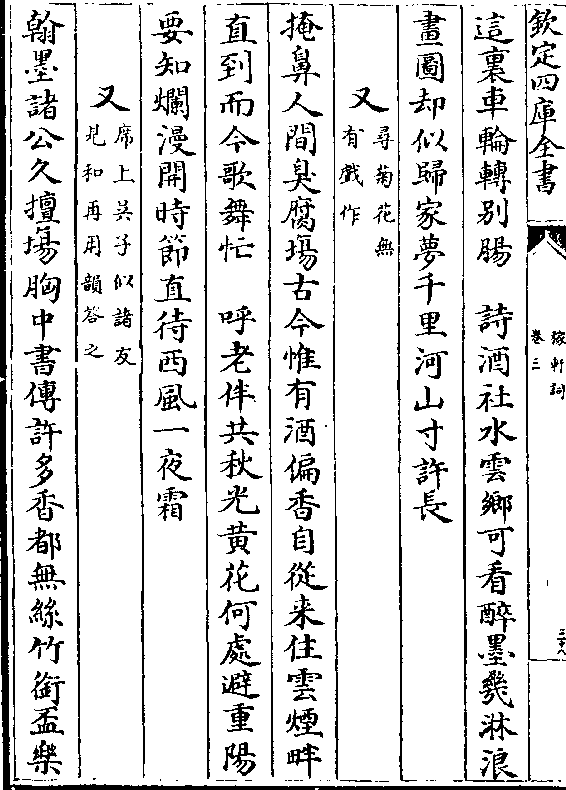 欽定四庫全書
稼軒詞
卷三
三十八
這裏車輪轉别腸　詩酒社水雲鄉可看醉墨幾淋浪
畫圖却似歸家夢千里河山寸許長
又
尋菊花無
有戲作
掩鼻人間臭腐塲古今惟有酒偏香自從来住雲煙畔
直到而今歌舞忙　呼老伴共秋光黄花何處避重陽
要知爛漫開時節直待西風一夜霜
又
席上呉子似諸友
見和再用韻答之
翰墨諸公久擅塲胸中書傳許多香都無絲竹銜盃樂